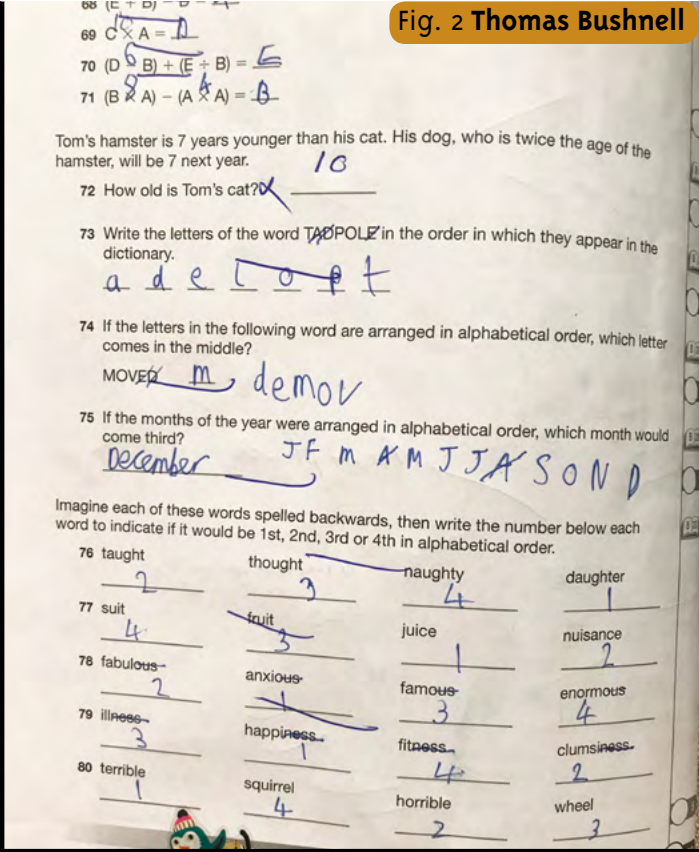 Fig. 2 Thomas Bushnell
68 (E + D) - D - 4
69 C × A = D
10
70 (D - B) + (E ÷ B) = E
6
71 (B × A) – (A × A) = B
8 4
Tom's hamster is 7 years younger than his cat. His dog, who is twice the age of the
hamster, will be 7 next year.
72 How old is Tom's cat? 10
73 Write the letters of the word TADPOLE in the order in which they appear in the
dictionary.
a d e l o p t
74 If the letters in the following word are arranged in alphabetical order, which letter
comes in the middle?
MOVED m demov
75 If the months of the year were arranged in alphabetical order, which month would
come third?
December J F M A M J J A S O N D
Imagine each of these words spelled backwards, then write the number below each
word to indicate if it would be 1st, 2nd, 3rd or 4th in alphabetical order.
76 taught thought naughty daughter
2 3 4 1
77 suit fruit juice nuisance
4 3 1 2
78 fabulous anxious famous enormous
2 1 3 4
79 illness happiness fitness clumsiness
3 1 4 2
80 terrible squirrel horrible wheel
1 4 2 3